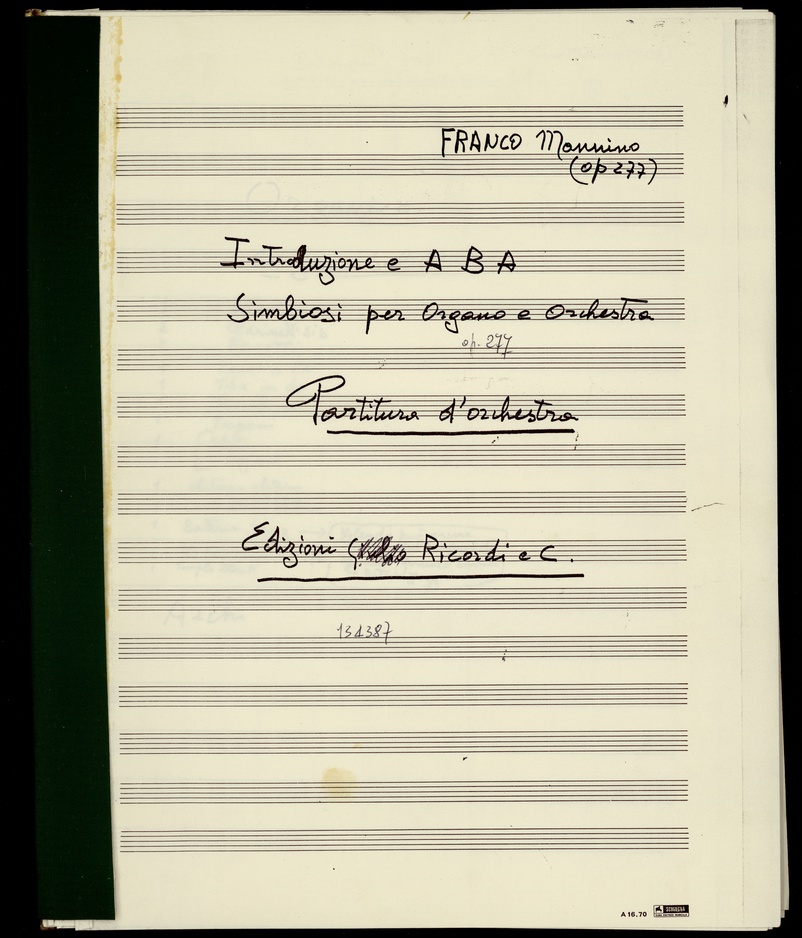 FRANCO Mannino
(op 277)
Introduzione e A B A
Simbiosi per Organo e Orchestra
op. 277
Partitura d'orchestra
Edizioni Ricordi e C.
134387
A 16.70